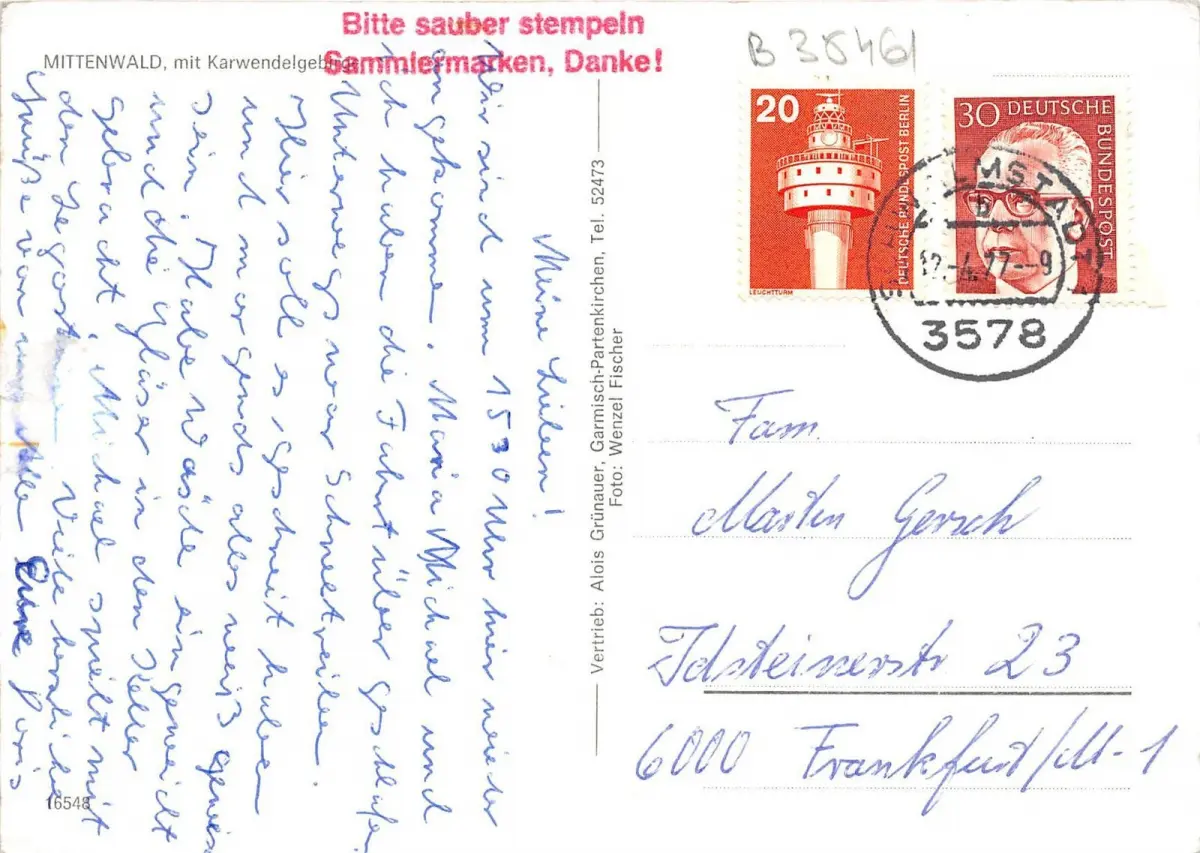 Bitte sauber stempeln
Sammlermarken, Danke!
MITTENWALD, mit Karwendelgebirge
B 38461
20
DEUTSCHE BUNDESPOST BERLIN
LEUCHTTURM
30 DEUTSCHE BUNDESPOST
b
12.-4.77--9
3578
Meine Lieben!
Wir sind um 15 30 Uhr hier wieder
angekommen. Maria Michael und
ich haben die Fahrt über geschlafen
Unterwegs war Schneetreiben.
Hier soll es geschneit haben
und morgends alles weiß gewesen
sein. Habe Wäsche eingeweicht
und die Gläser in den Keller
gebracht. Michael spielt mit
den Viele herzliche
Grüße von uns Alle Eure Doris
Vertrieb: Alois Grünauer, Garmisch-Partenkirchen, Tel. 52473
Foto: Wenzel Fischer
Fam.
Martin Gersch
Idsteinerstr 23
6000 Frankfurt/M-1
16548